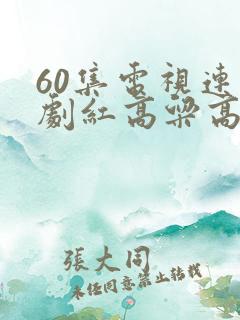 60集電視連
劇紅高粱高
張大同
未经同意禁止转载